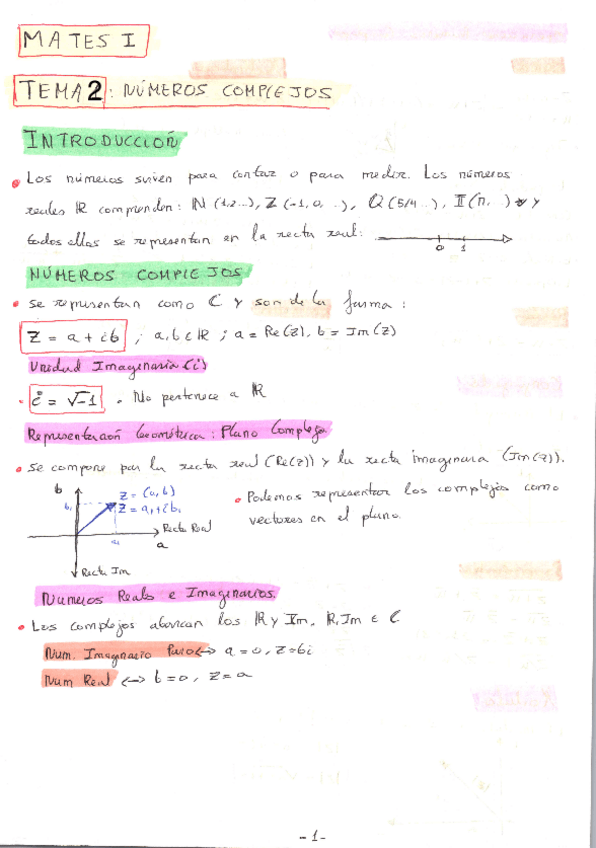 MATES I
TEMA 2: NÚMEROS COMPLEJOS
INTRODUCCIÓN
• Los números sirven para contar o para medir. Los números
reales ℝ comprenden: ℕ (1,2...), ℤ (-1, 0, ..), ℚ (5/4...), 𝕀 (π, ) y
todos ellos se representan en la recta real:
0 1
NÚMEROS COMPLEJOS
• Se representan como ℂ y son de la forma:
Z = a + ib ; a, b ∈ ℝ ; a = Re(z), b = Im(z)
Unidad Imaginaria (i)
• i = √-1 . No pertenece a ℝ
Representación Geométrica: Plano Complejo
• Se compone por la recta real (Re(z)) y la recta imaginaria (Im(z)).
b
b₁
Z = (a, b)
Z = a₁ + ib₁
Recta Real
a₁
a
Recta Im
• Podemos representar los complejos como
vectores en el plano.
Números Reales e Imaginarios.
• Los complejos abarcan los ℝ y Im. ℝ, Im ∈ ℂ
Num. Imaginario Puro ↔ a = 0, Z = bi
Num Real ↔ b = 0, Z = a
- 1 -